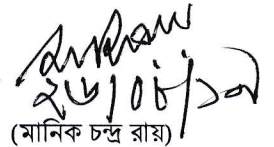 ২৬/০৮/১৭
(মানিক চন্দ্র রায়)